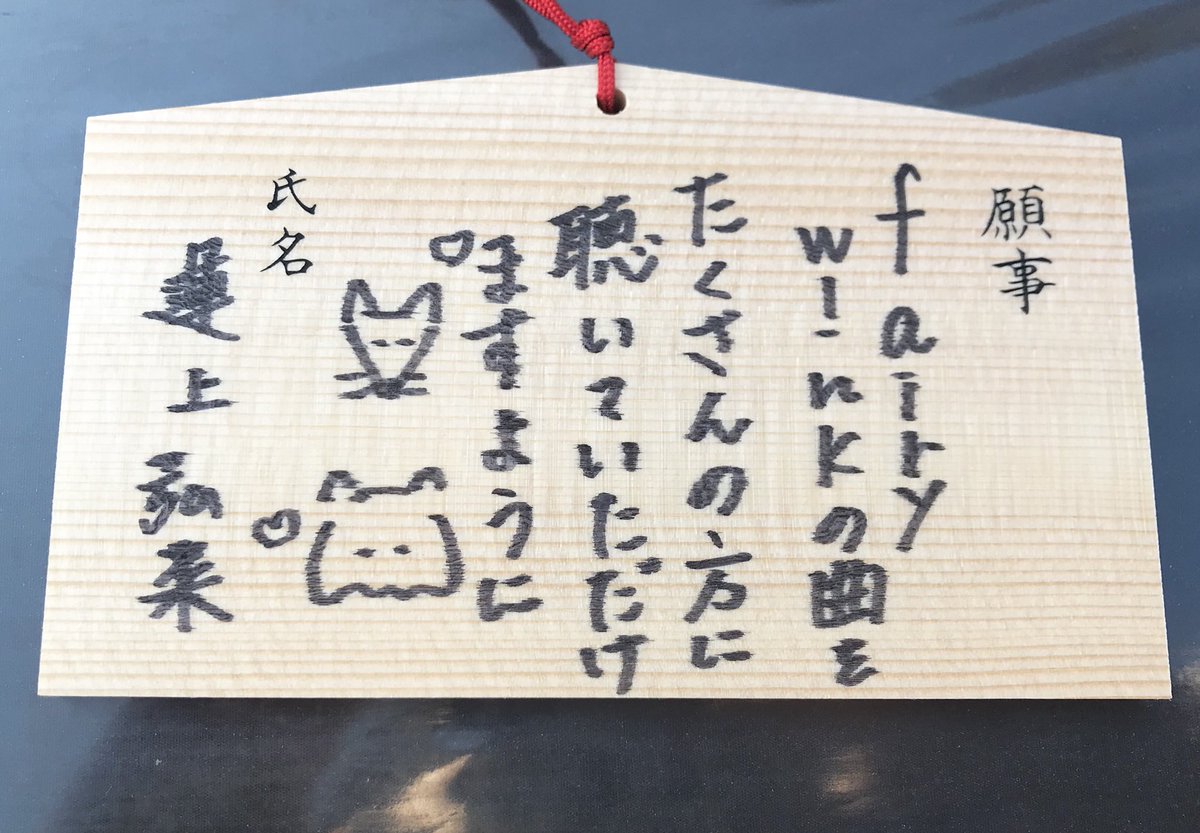 願事
fairy
w!nkの曲を
たくさんの方に
聴いていただけ
ますように
氏名